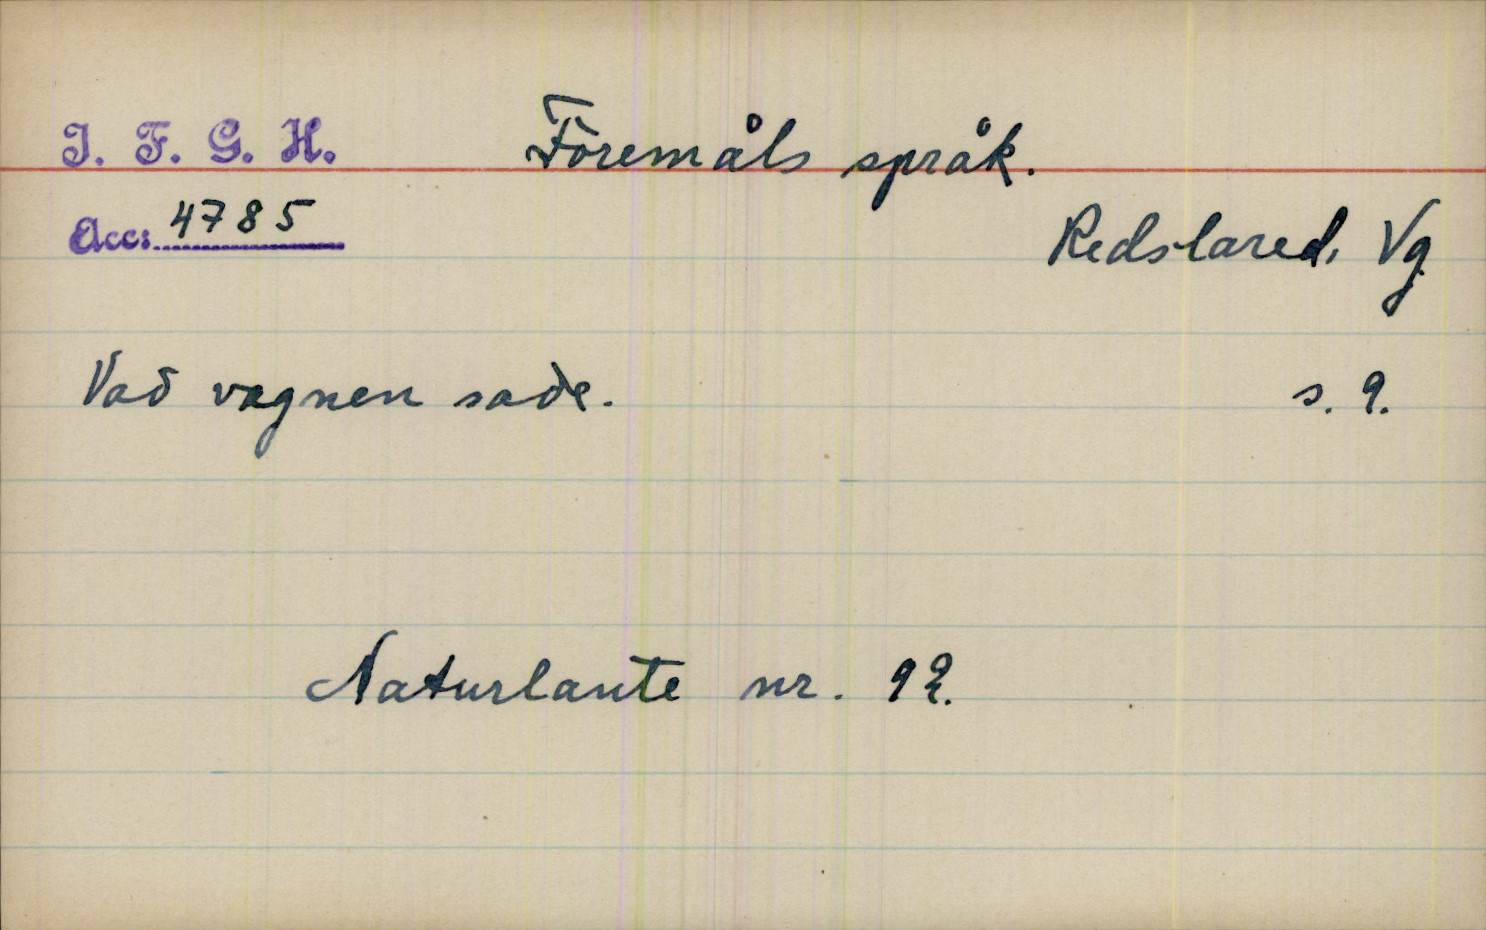 I. F. G. H.
Föremåls språk.
Acc: 4785
Redslared, Vg
Vad vagnen sade. s. 9.
Naturlante nr. 92.